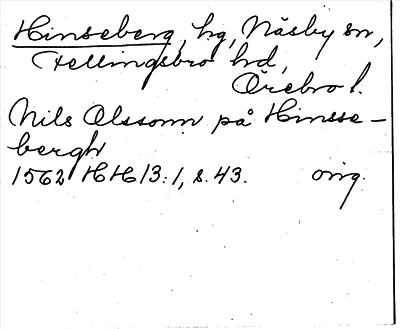 Hinseberg, hg, Näsby sn,
Fellingsbro hd,
Örebro l.
Nils Olssonn på Hinsse-
bergh
1562 HH 13:1, s. 43. orig.